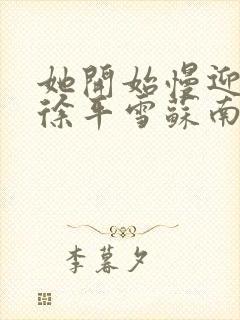 她開始慢迎
徐平雪蘇南
李暮夕